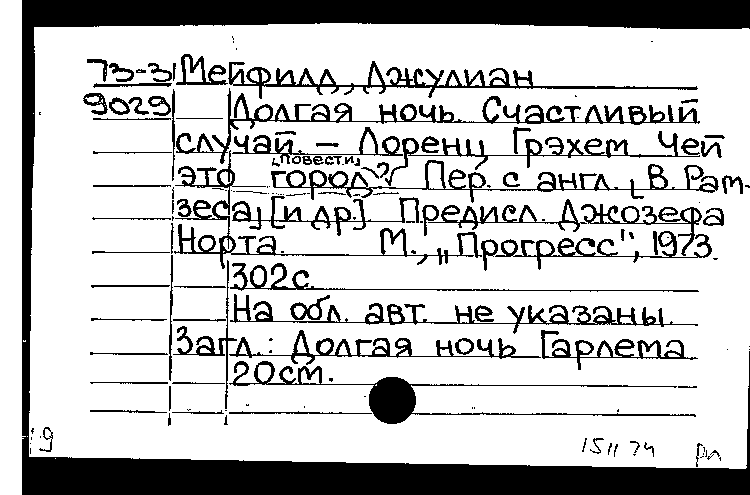 73-3 Мейфилд, Джулиан
9029 Долгая ночь. Счастливый
случай. — Лоренц Грэхем Чей
[Повести]
это город? Пер. с англ. [В. Рам-
зеса] [и др.]. Предисл. Джозефа
Норта. М., „Прогресс", 1973.
302 с.
На обл. авт. не указаны.
Загл.: Долгая ночь Гарлема
20 см.
19 15 II 74 рл